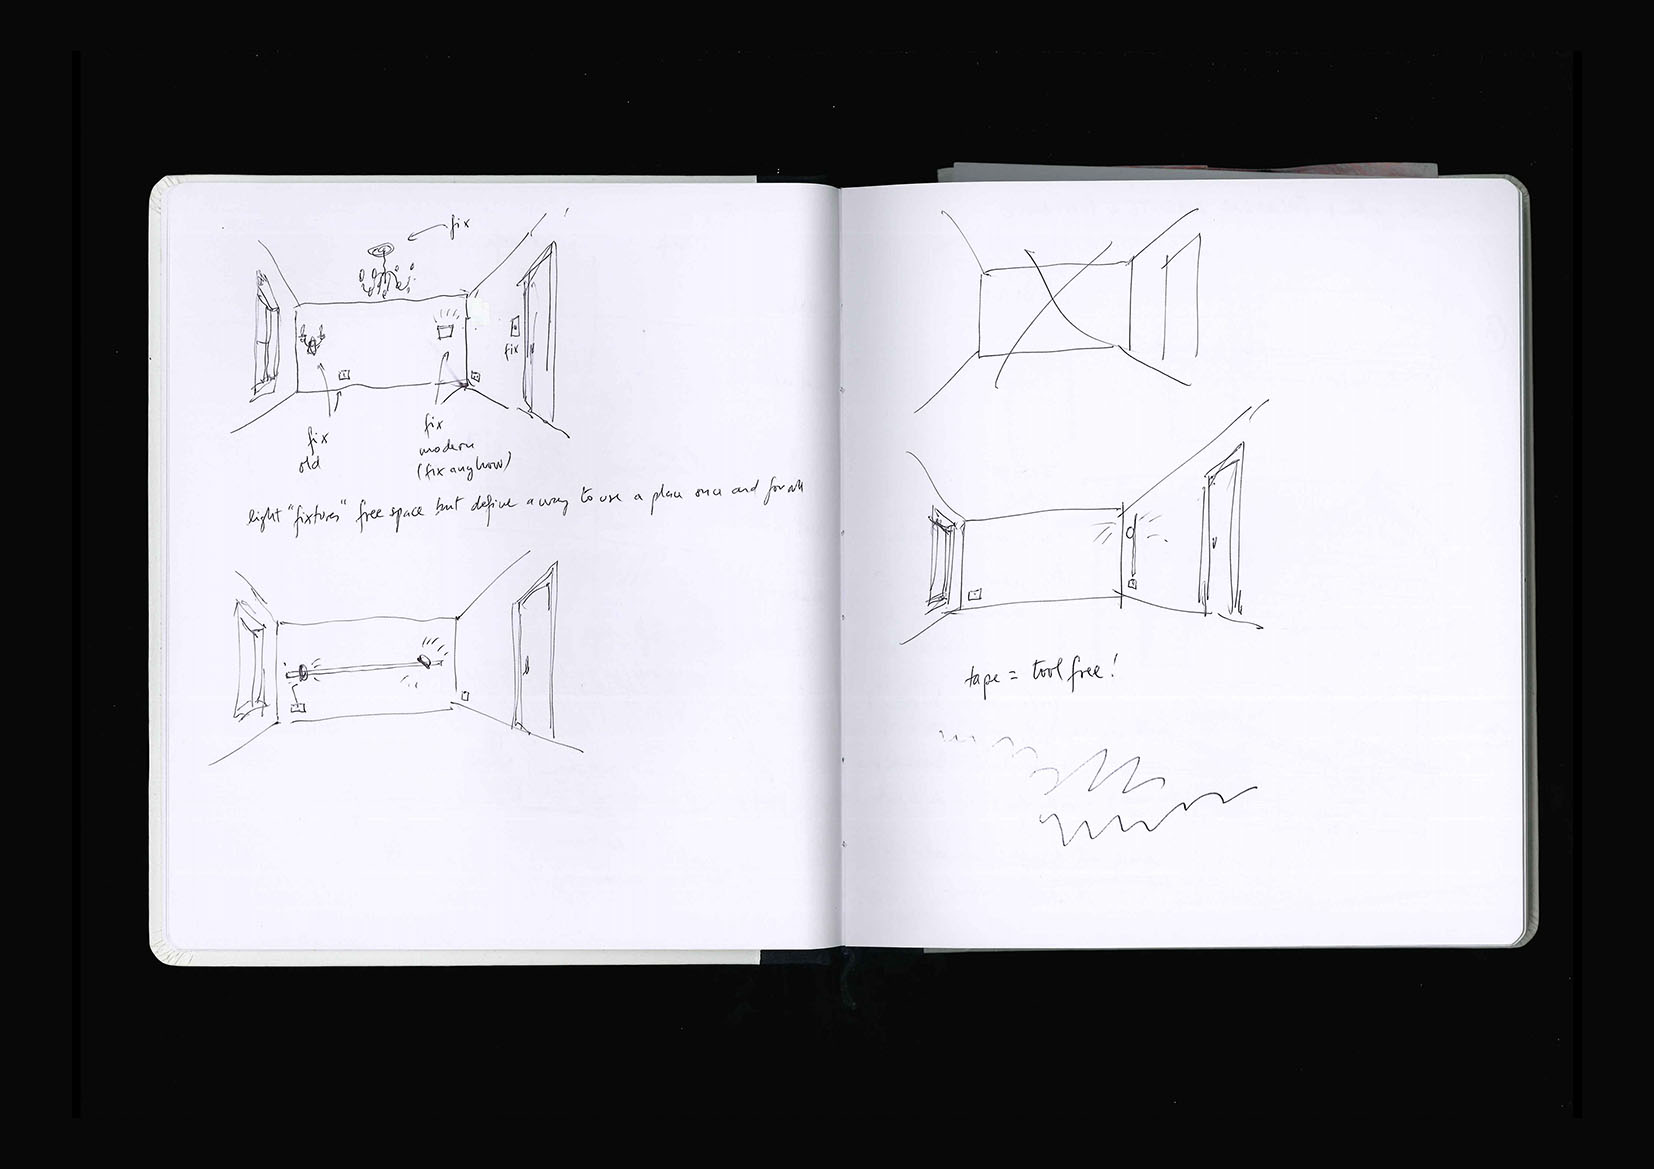 fix
fix
fix
old
fix
modern
(fix anyhow)
light "fixtures" free space but define a way to use a place once and for all
tape = tool free!